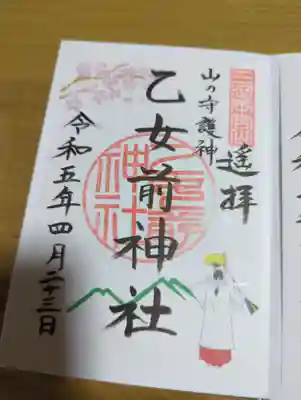 遥拝
山の守護神
乙女前神社
令和五年四月二十三日